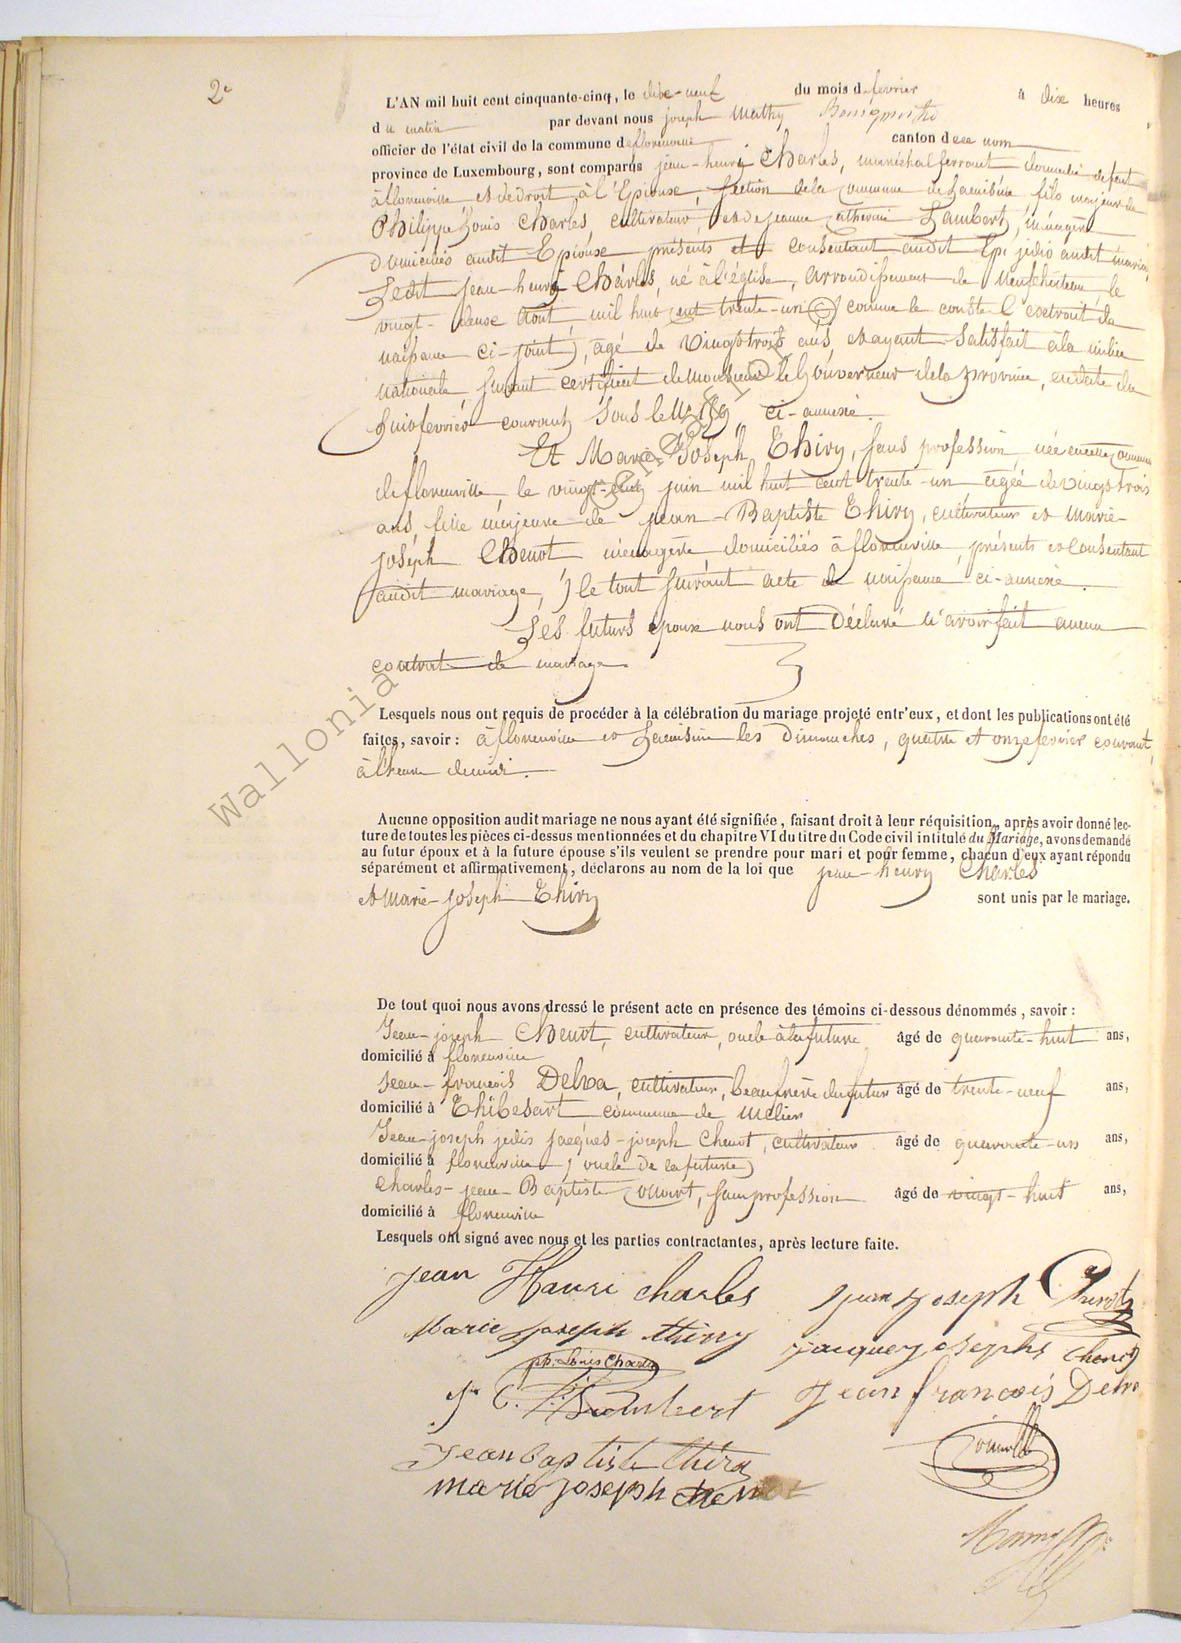 2e
L'AN mil huit cent cinquante-cinq, le dixe-neuf du mois d fevrier à dixe heures
du matin par devant nous joseph Mathy Bourgmestre
officier de l'état civil de la commune deflorenville canton dece nom
province de Luxembourg, sont comparus jean-henry Charles, maréchal ferrant domicilié defait
àflorenville et dedroit à l'Epiouse, section dela Commune deLamisine, fils majeur de
Philippe Louis Charles, cultivateur, et de jeanne catherine Lambert, ménagère
domiciliés audit Epiouse présents et consentant audit mariage
Ledit jean-henry Charles, né à l'église, arrondissement de Neufchâteau, le
vingt-deuxe Août mil huit cent trente-un comme le conste l'exetrait de
naissance ci-joint), agé de vingtrois ans, etayant satisfait àla milice
nationale, suivant certificat demonsieur leGouverneur dela province, endate du
huitfevrier courant sous leNo ci-annexé.
Et Marie-Joseph Thiry, sans profession, née encette commune
deflorenville, le vingt- juin mil huit cent trente-un agée devingtrois
ans, fille majeure de jean-Baptiste Thiry, cultivateur et marie-
joseph Chenot ménagère domiciliés àflorenville, présents et consentant
audit mariage, ) le tout suivant acte de naissance ci-annexé.
Les futurs epoux nous ont Déclaré n'avoir fait aucun
contrat de mariage
Lesquels nous ont requis de procéder à la célébration du mariage projeté entr'eux, et dont les publications ont été
faites, savoir : àflorenville et Lamisine les Dimanches, quatre et onzefevrier courant,
àl'heure demidi.
Aucune opposition audit mariage ne nous ayant été signifiée, faisant droit à leur réquisition, après avoir donné lec-
ture de toutes les pièces ci-dessus mentionnées et du chapitre VI du titre du Code civil intitulé du Mariage, avons demandé
au futur époux et à la future épouse s'ils veulent se prendre pour mari et pour femme, chacun d'eux ayant répondu
séparément et affirmativement, déclarons au nom de la loi que jean-henry Charles
et Marie-joseph Thiry sont unis par le mariage.
De tout quoi nous avons dressé le présent acte en présence des témoins ci-dessous dénommés, savoir :
Jean-joseph Chenot, cultivateur, oncle àlafuture âgé de quarante-huit ans,
domicilié à florenville
Jean-francois Delva, cultivateur, beaufrère dufutur âgé de trente-neuf ans,
domicilié à Thibesart commune de Melier
Jean-joseph jadis jacques-joseph Chenot, cultivateur âgé de quarante-un ans,
domicilié à florenville (oncle de lafuture)
Charles-jean-Baptiste , sans profession âgé de vingt-huit ans,
domicilié à florenville
Lesquels ont signé avec nous et les parties contractantes, après lecture faite.
jean Hanri charles jean joseph Chenot
Marie joseph thirry jacque josephs Chenot
ph. Louis Charles
J C Lambert Jean francois Delva
Jean baptiste thiry
marie joseph chenot
Wallonia